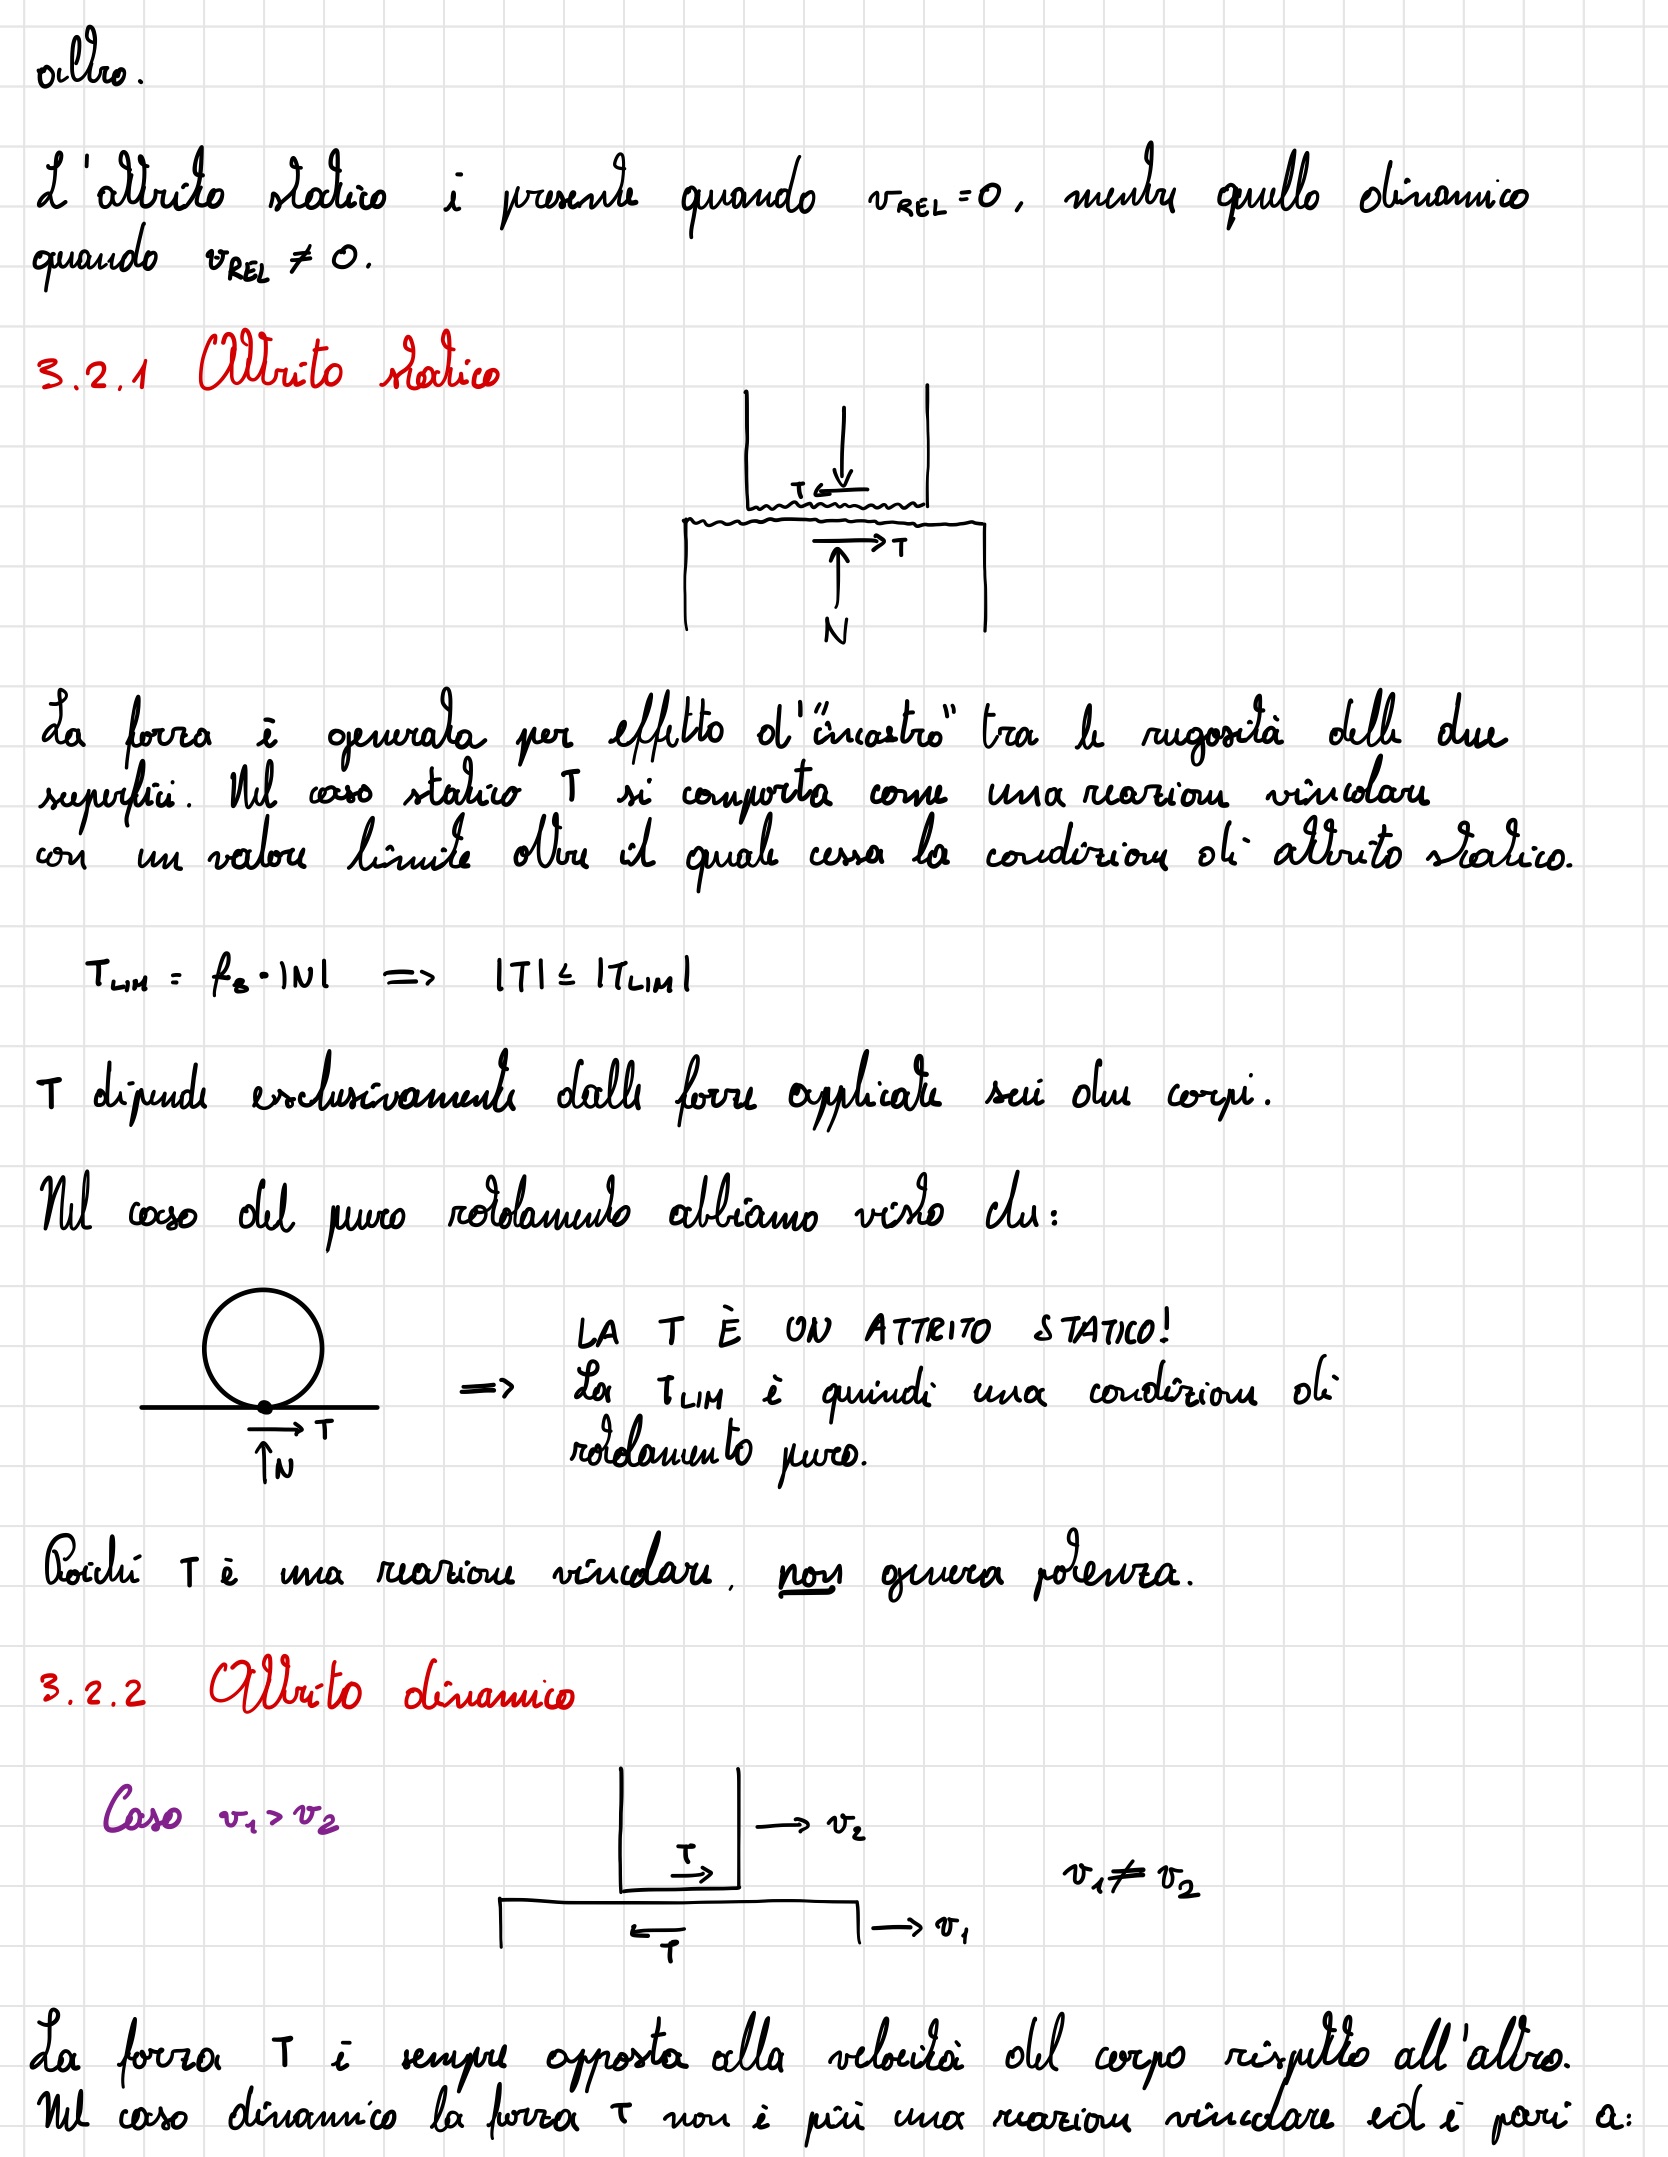 altro.
L'attrito statico è presente quando v_REL = 0, mentre quello dinamico
quando v_REL ≠ 0.
3.2.1 Attrito statico
T
T
N
La forza è generata per effetto d'"incastro" tra le rugosità delle due
superfici. Nel caso statico T si comporta come una reazione vincolare
con un valore limite oltre il quale cessa la condizione di attrito statico.
T_LIM = f_s · |N| => |T| ≤ |T_LIM|
T dipende esclusivamente dalle forze applicate sui due corpi.
Nel caso del puro rotolamento abbiamo visto che:
LA T È UN ATTRITO STATICO!
=> La T_LIM è quindi una condizione di
T
N
rotolamento puro.
Poiché T è una reazione vincolare, non genera potenza.
3.2.2 Attrito dinamico
Caso v₁ > v₂
v₂
T
v₁ ≠ v₂
v₁
T
La forza T è sempre opposta alla velocità del corpo rispetto all'altro.
Nel caso dinamico la forza T non è più una reazione vincolare ed è pari a: